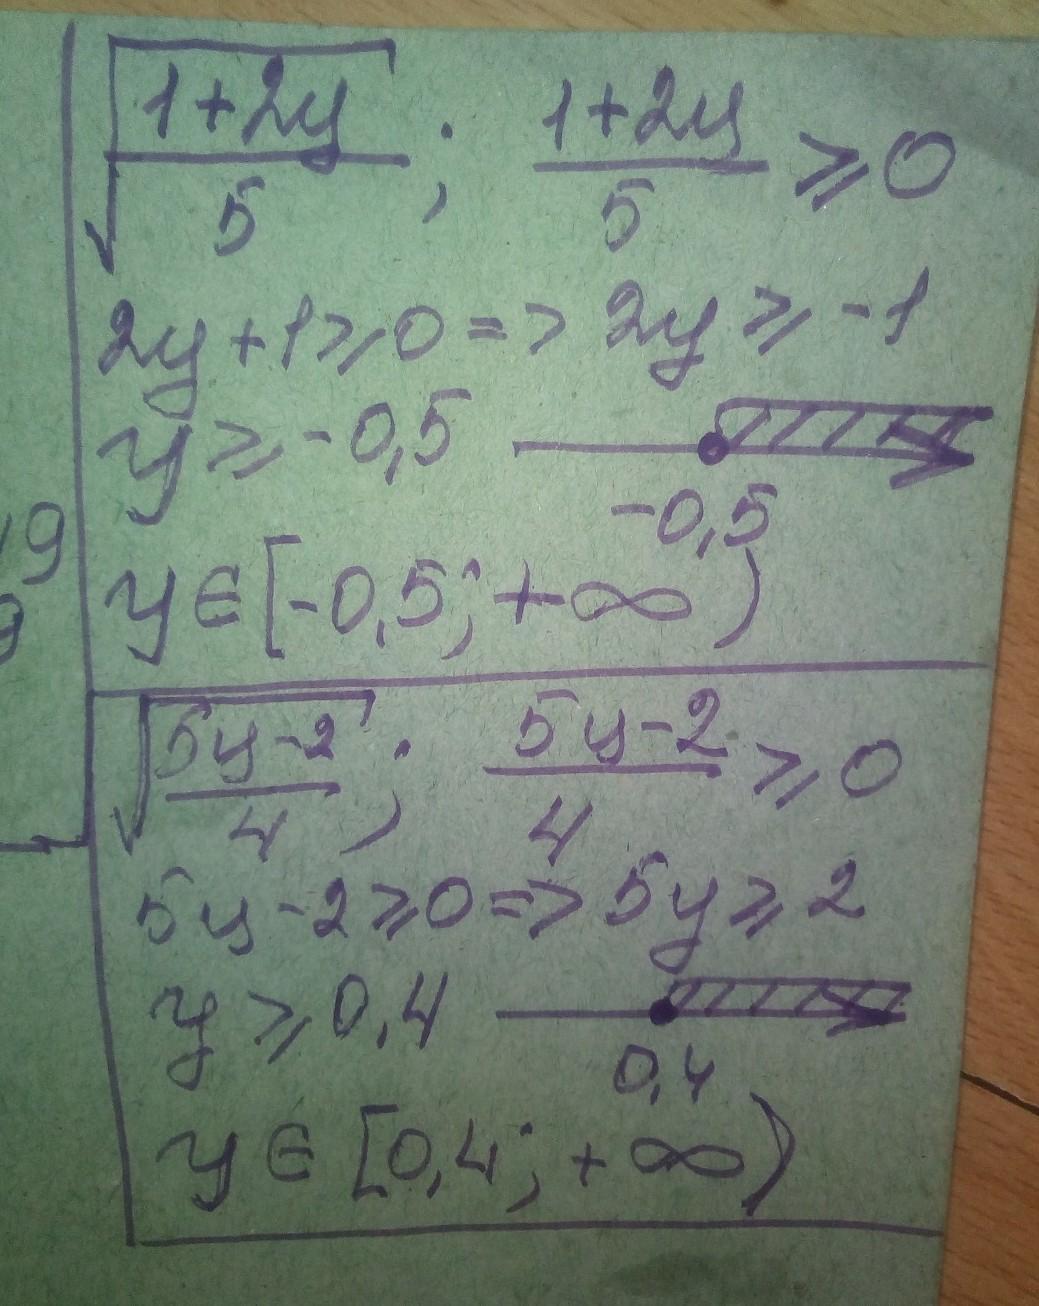 √((1+2y)/5) ; (1+2y)/5 ⩾ 0
2y+1⩾0 => 2y ⩾ -1
y ⩾ -0,5
-0,5
y ∈ [-0,5; +∞)
√((5y-2)/4) ; (5y-2)/4 ⩾ 0
5y-2⩾0 => 5y ⩾ 2
y ⩾ 0,4
0,4
y ∈ [0,4; +∞)